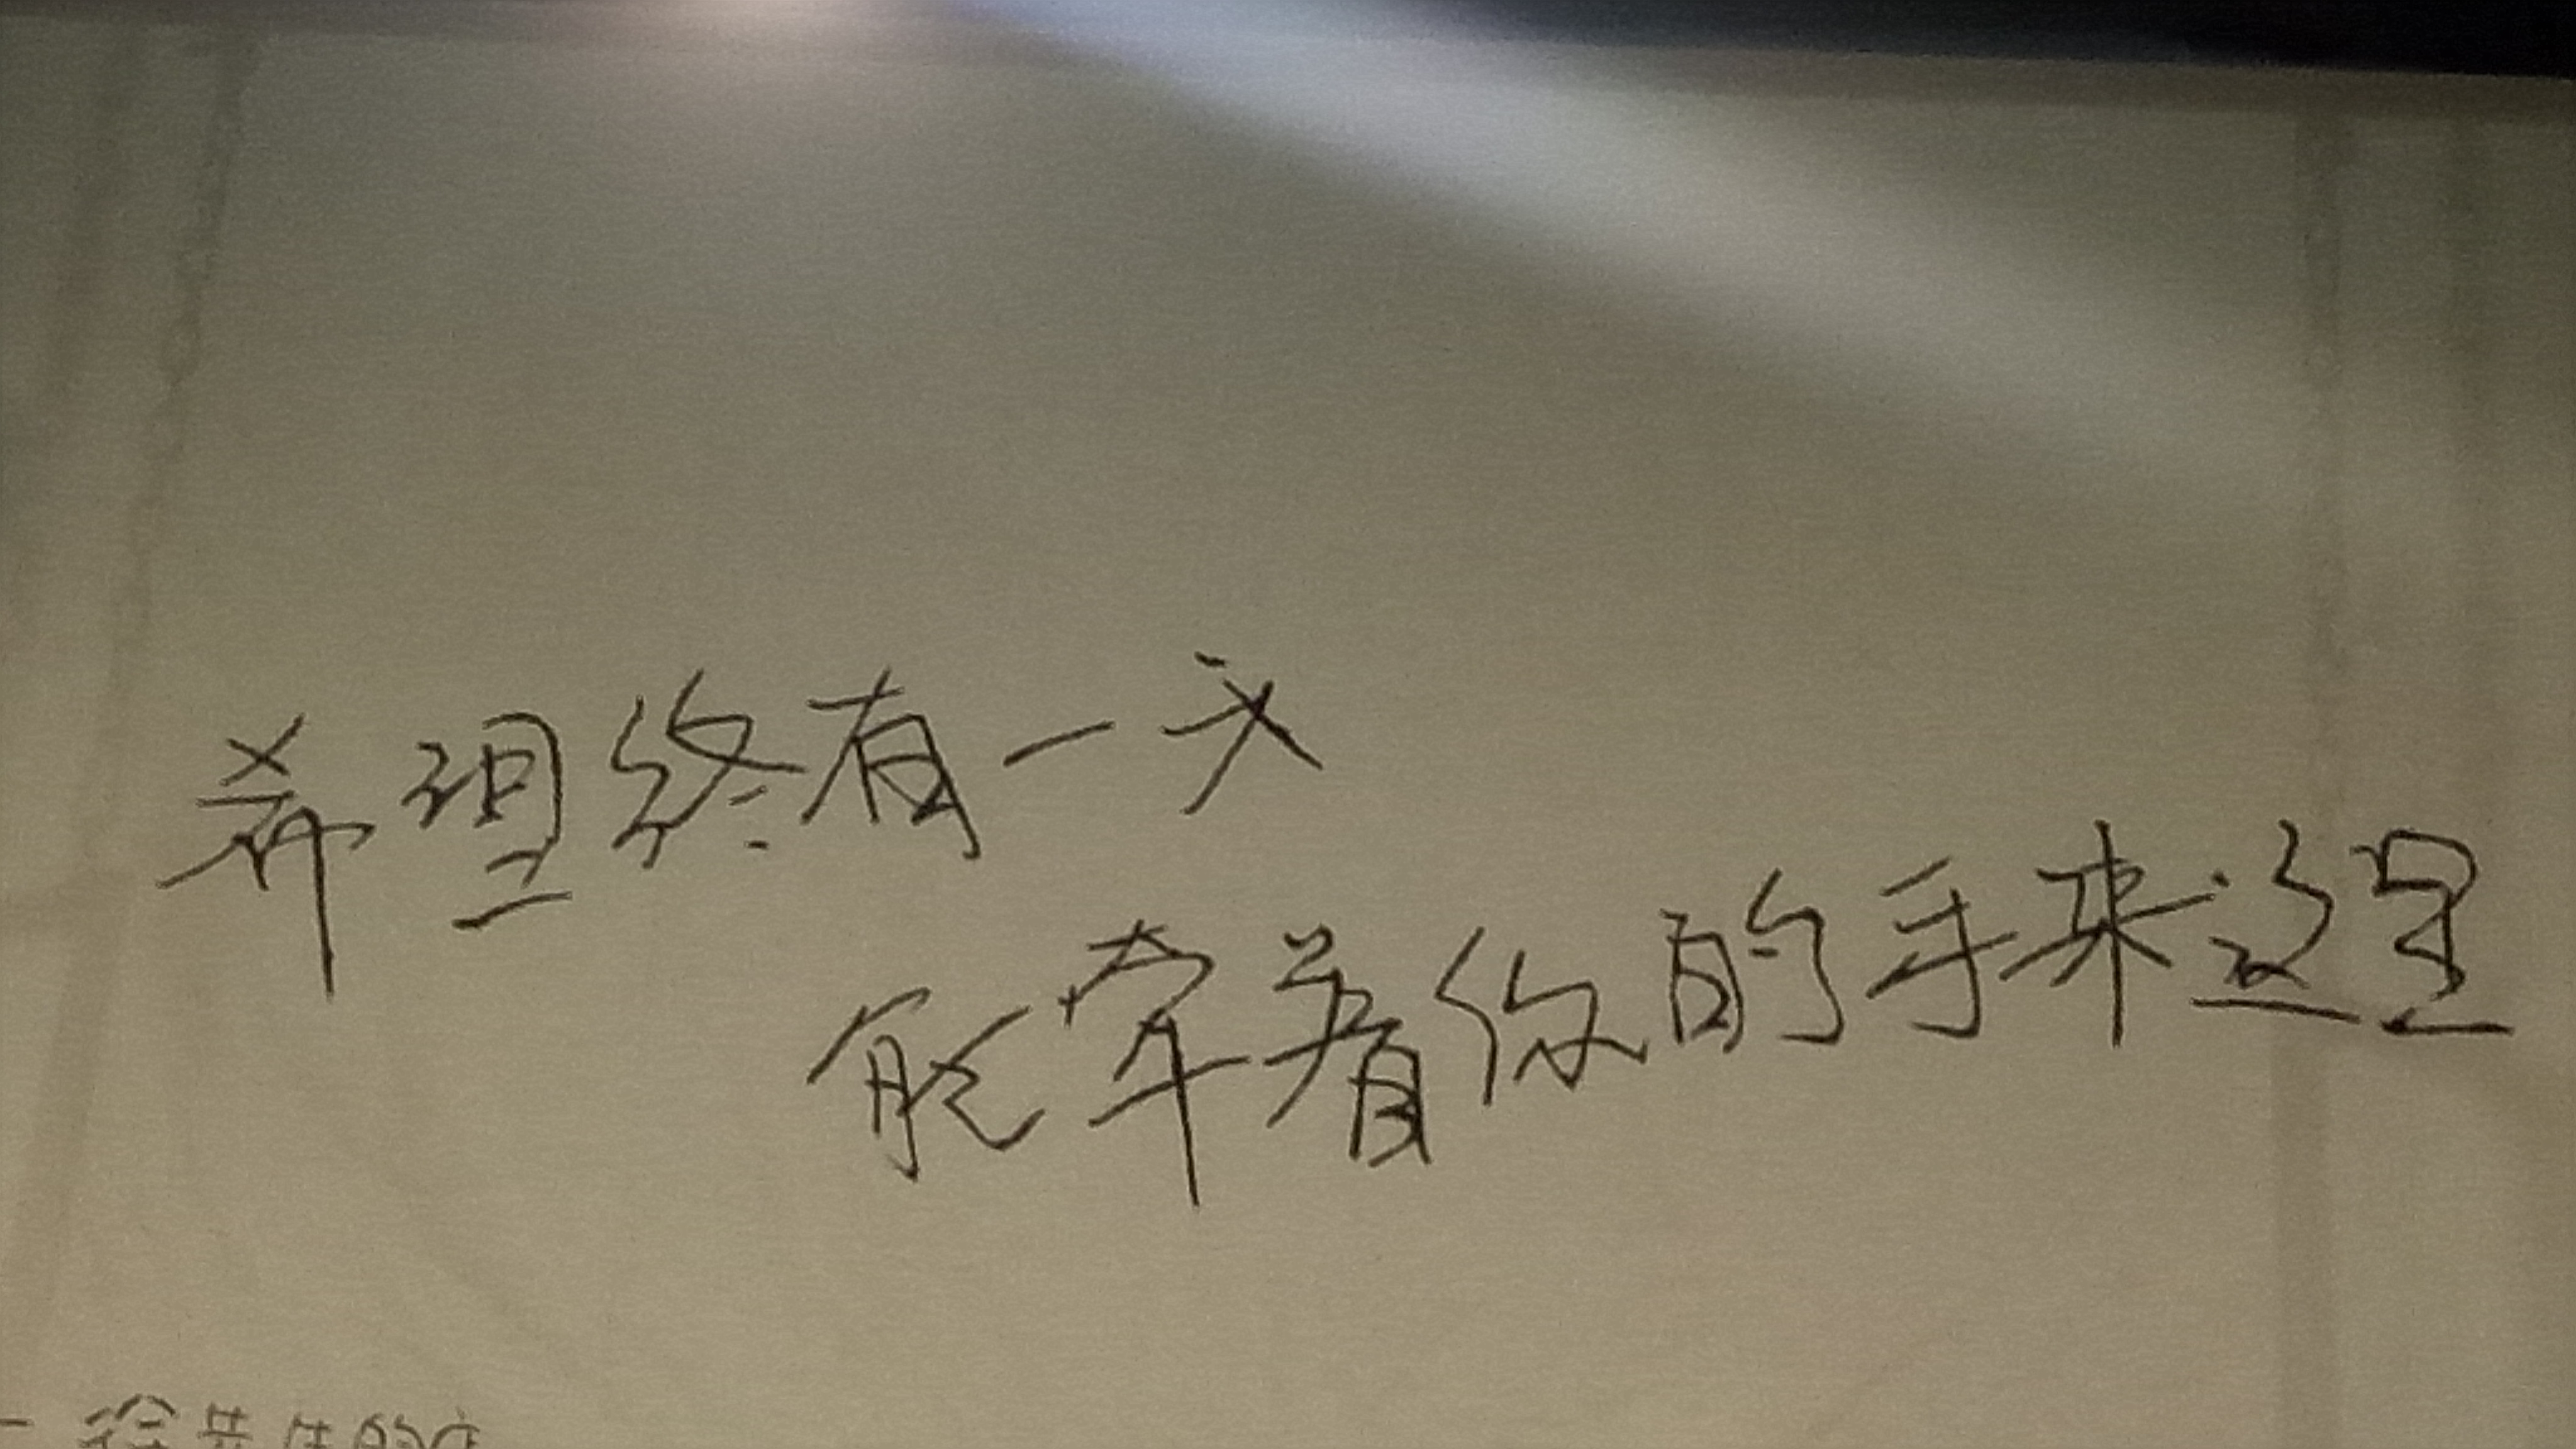 希望终有一天
能牵着你的手来这里